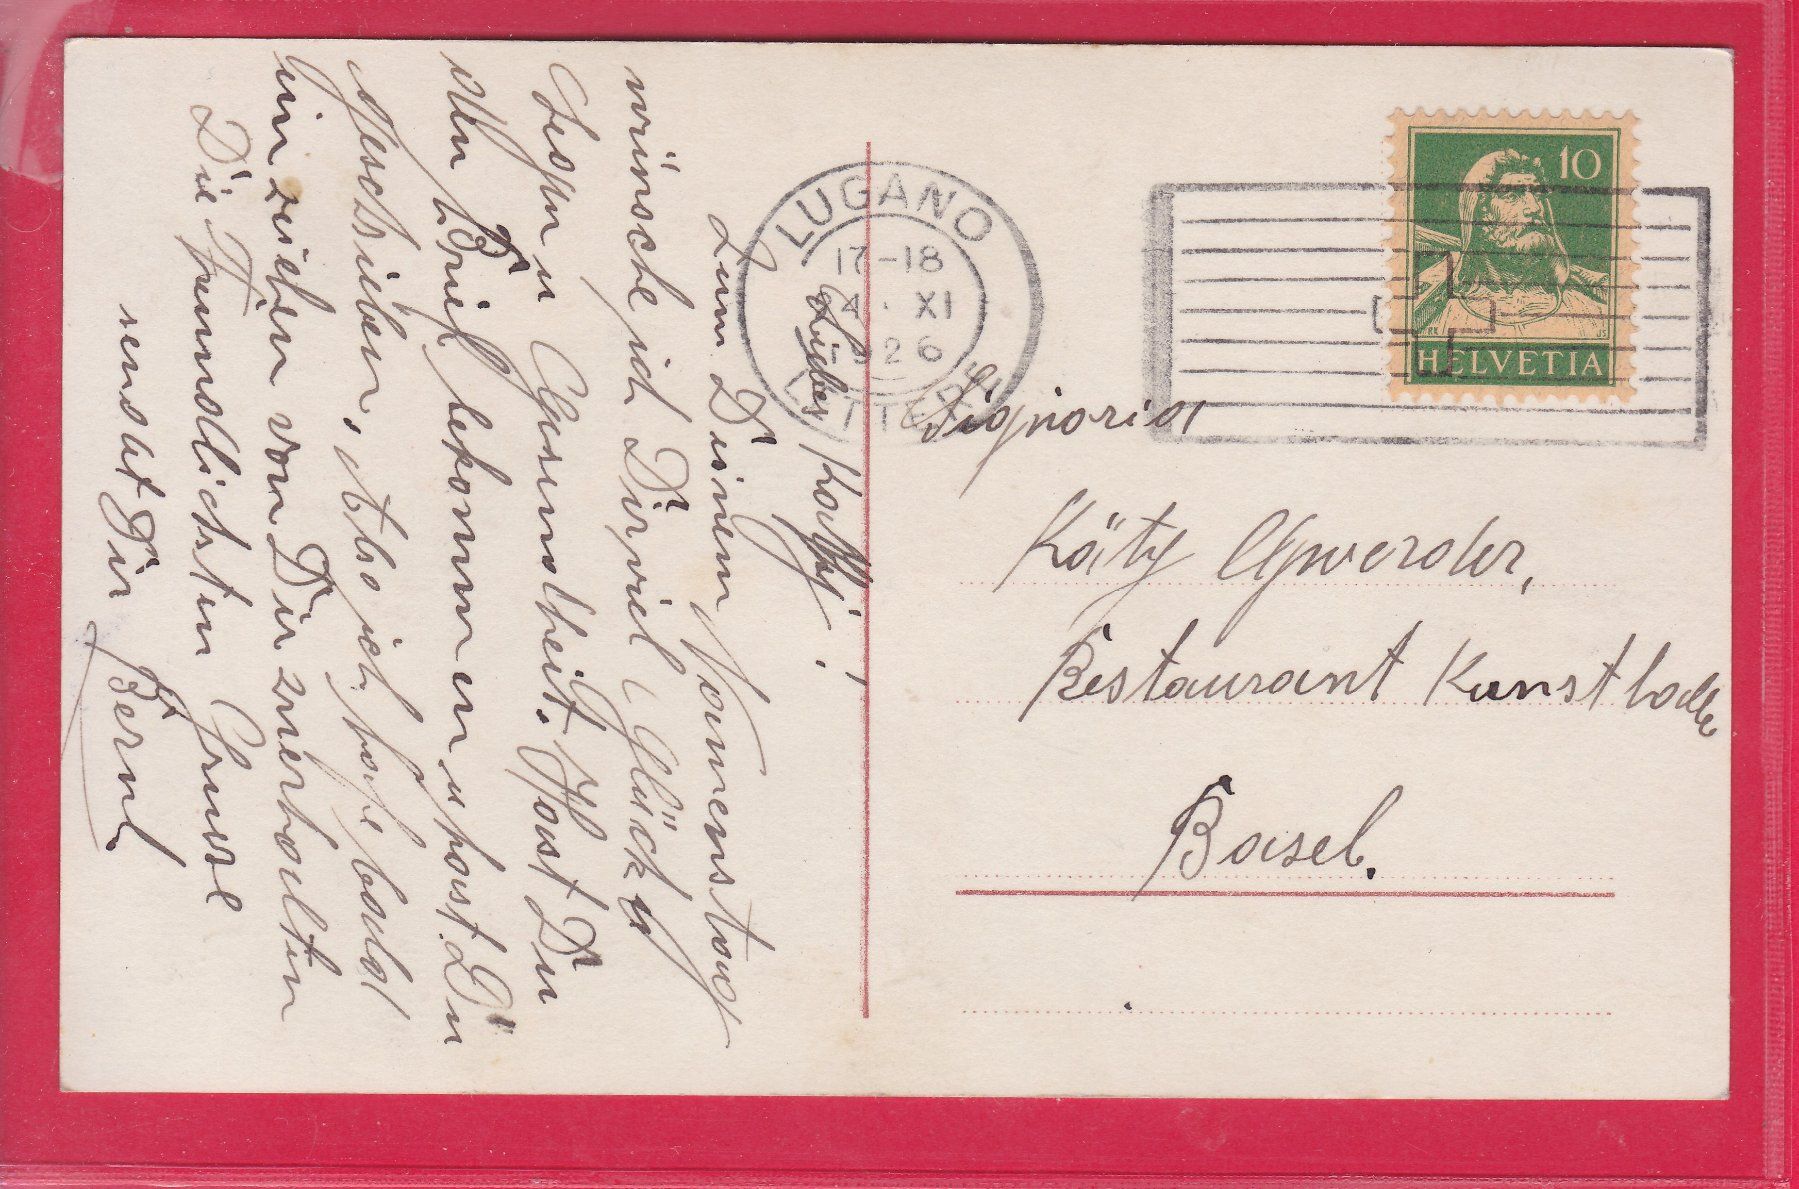 Liebes Kätty!
Zum Deinem Namenstag
wünsche ich Dir viel Glück u
Segen u Gesundheit. Hast Du
den Brief bekommen u hast Du
geschrieben, Also ich hoffe bald
ein zeichen von Dir zu erhalten
Die freundlichsten Grüsse
sendet Dir Bernh
LUGANO
17-18
4. XI
1926
LETTERE
10
HELVETIA
Signorina
Käty Gwerder,
Restaurant Kunsthalle
Basel.